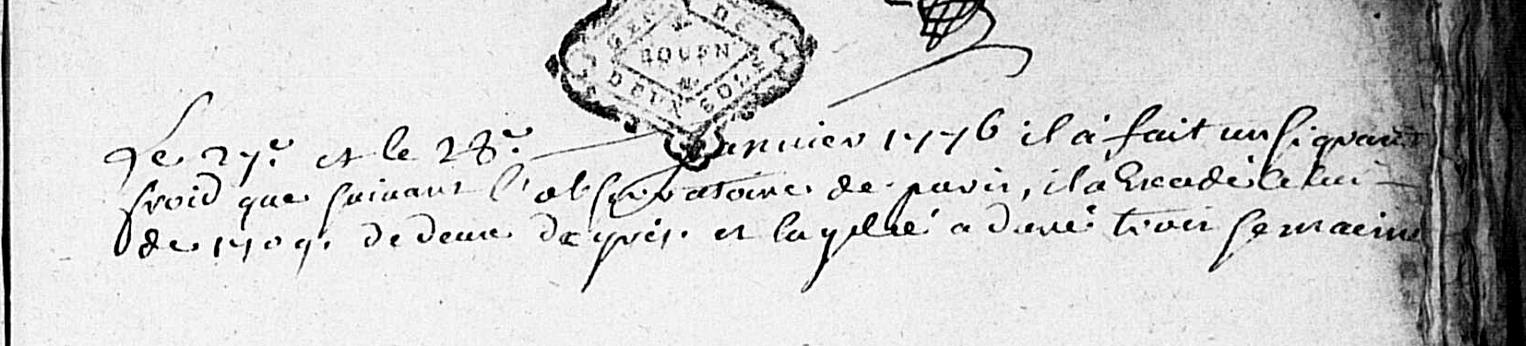 GEN DE
ROUEN
DEUX SOLS
Le 27e et le 28e janvier 1776 il a fait un si grand
froid que suivant l'observatoire de paris, il a Excedé celui
de 1709. de deux degrés. et la gelée a duré trois semaines